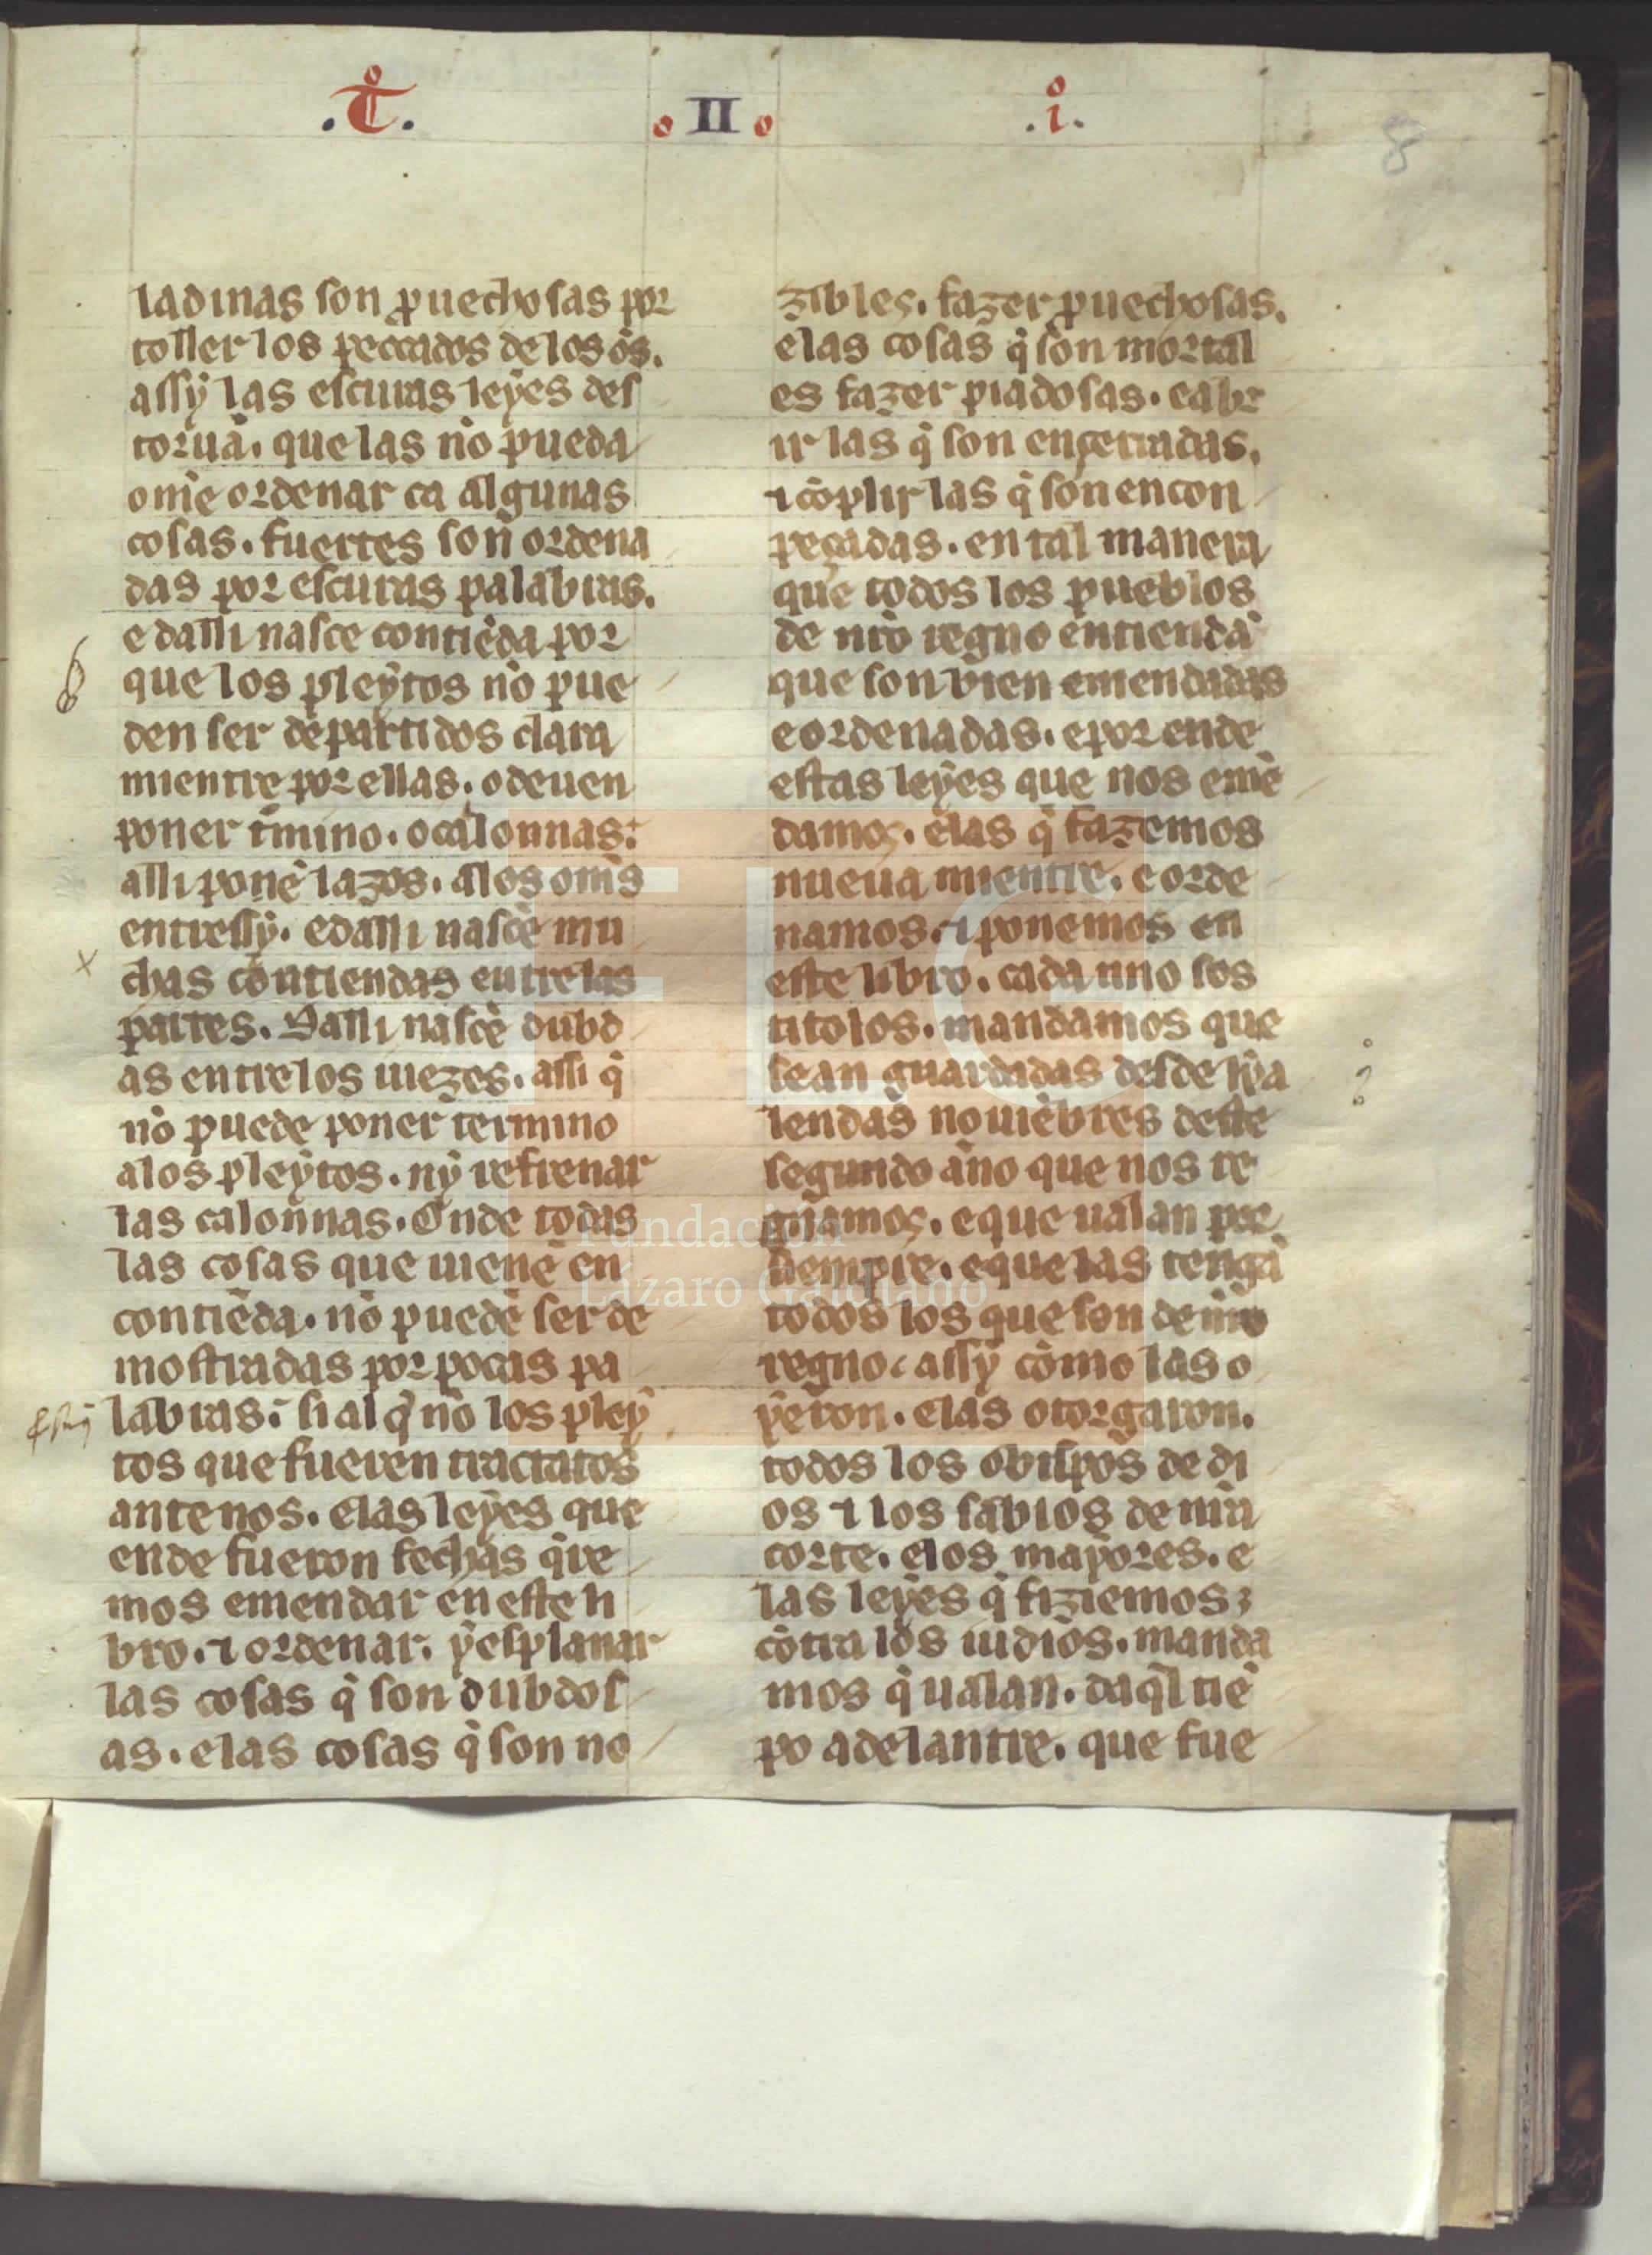 .T͛.
. II .
.i͛.
8
ladinas son ꝓuechosas por
toller los peccados de los oͫs.
assẏ las escuras leẏes des
toruā. que las nō pueda
om̄e ordenar ca algunas
cosas. fuertes son ordena
das por escuras palabras.
e dalli nasce contiēda por
que los pleẏtos nō pue
den ser departidos clara
mientre por ellas. o deuen
poner t̄mino. o calonnas:
alli ponē lazos. a los om̄s
entressẏ. e dalli nascē mu
chas contiendas entre las
partes. Dalli nascē dubd
as entre los iuezes. assi q̄
nō puede poner termino
a los pleẏtos. nẏ refrenar
las calonnas. Onde todas
las cosas que uienē en
contiēda. nō puedē ser de
mostradas por pocas pa
labras. si al q̄ nō los pleẏ
tos que fueren tractatos
ante nos. e las leẏes que
ende fueron fechas q̄re
mos emendar en este li
bro. ⁊ ordenar. ẏ esplanar
las cosas q̄ son dubdos
as. e las cosas q̄ son no
zibles. fazer ꝓuechosas.
e las cosas q̄ son mortal
es fazer piadosas. e abr
ir las q̄ son ençerradas.
⁊ cōplir las q̄ son encon
peçadas. en tal manera
que todos los pueblos
de nr̄o regno entiendā
que son bien emendadas
e ordenadas. e por ende
estas leẏes que nos emē
damos. e las q̄ fazemos
nueua mientre. e orde
namos. ⁊ ponemos en
este libro. cada uno sos
titolos. mandamos que
sean guardadas desde ka
lendas nouiēbres deste
segundo año que nos re
gnamos. e que ualan por
siempre. e que las tengā
todos los que son de nr̄o
regno. assẏ cōmo las o
ẏeron. e las otorgaron.
todos los obispos de di
os ⁊ los sabios de nr̄a
corte. e los maẏores. e
las leẏes q̄ fiziemos
cōtra los iudios. manda
mos q̄ ualan. daq̄l tiē
po adelantre. que fue
Fundación
Lázaro Galdiano